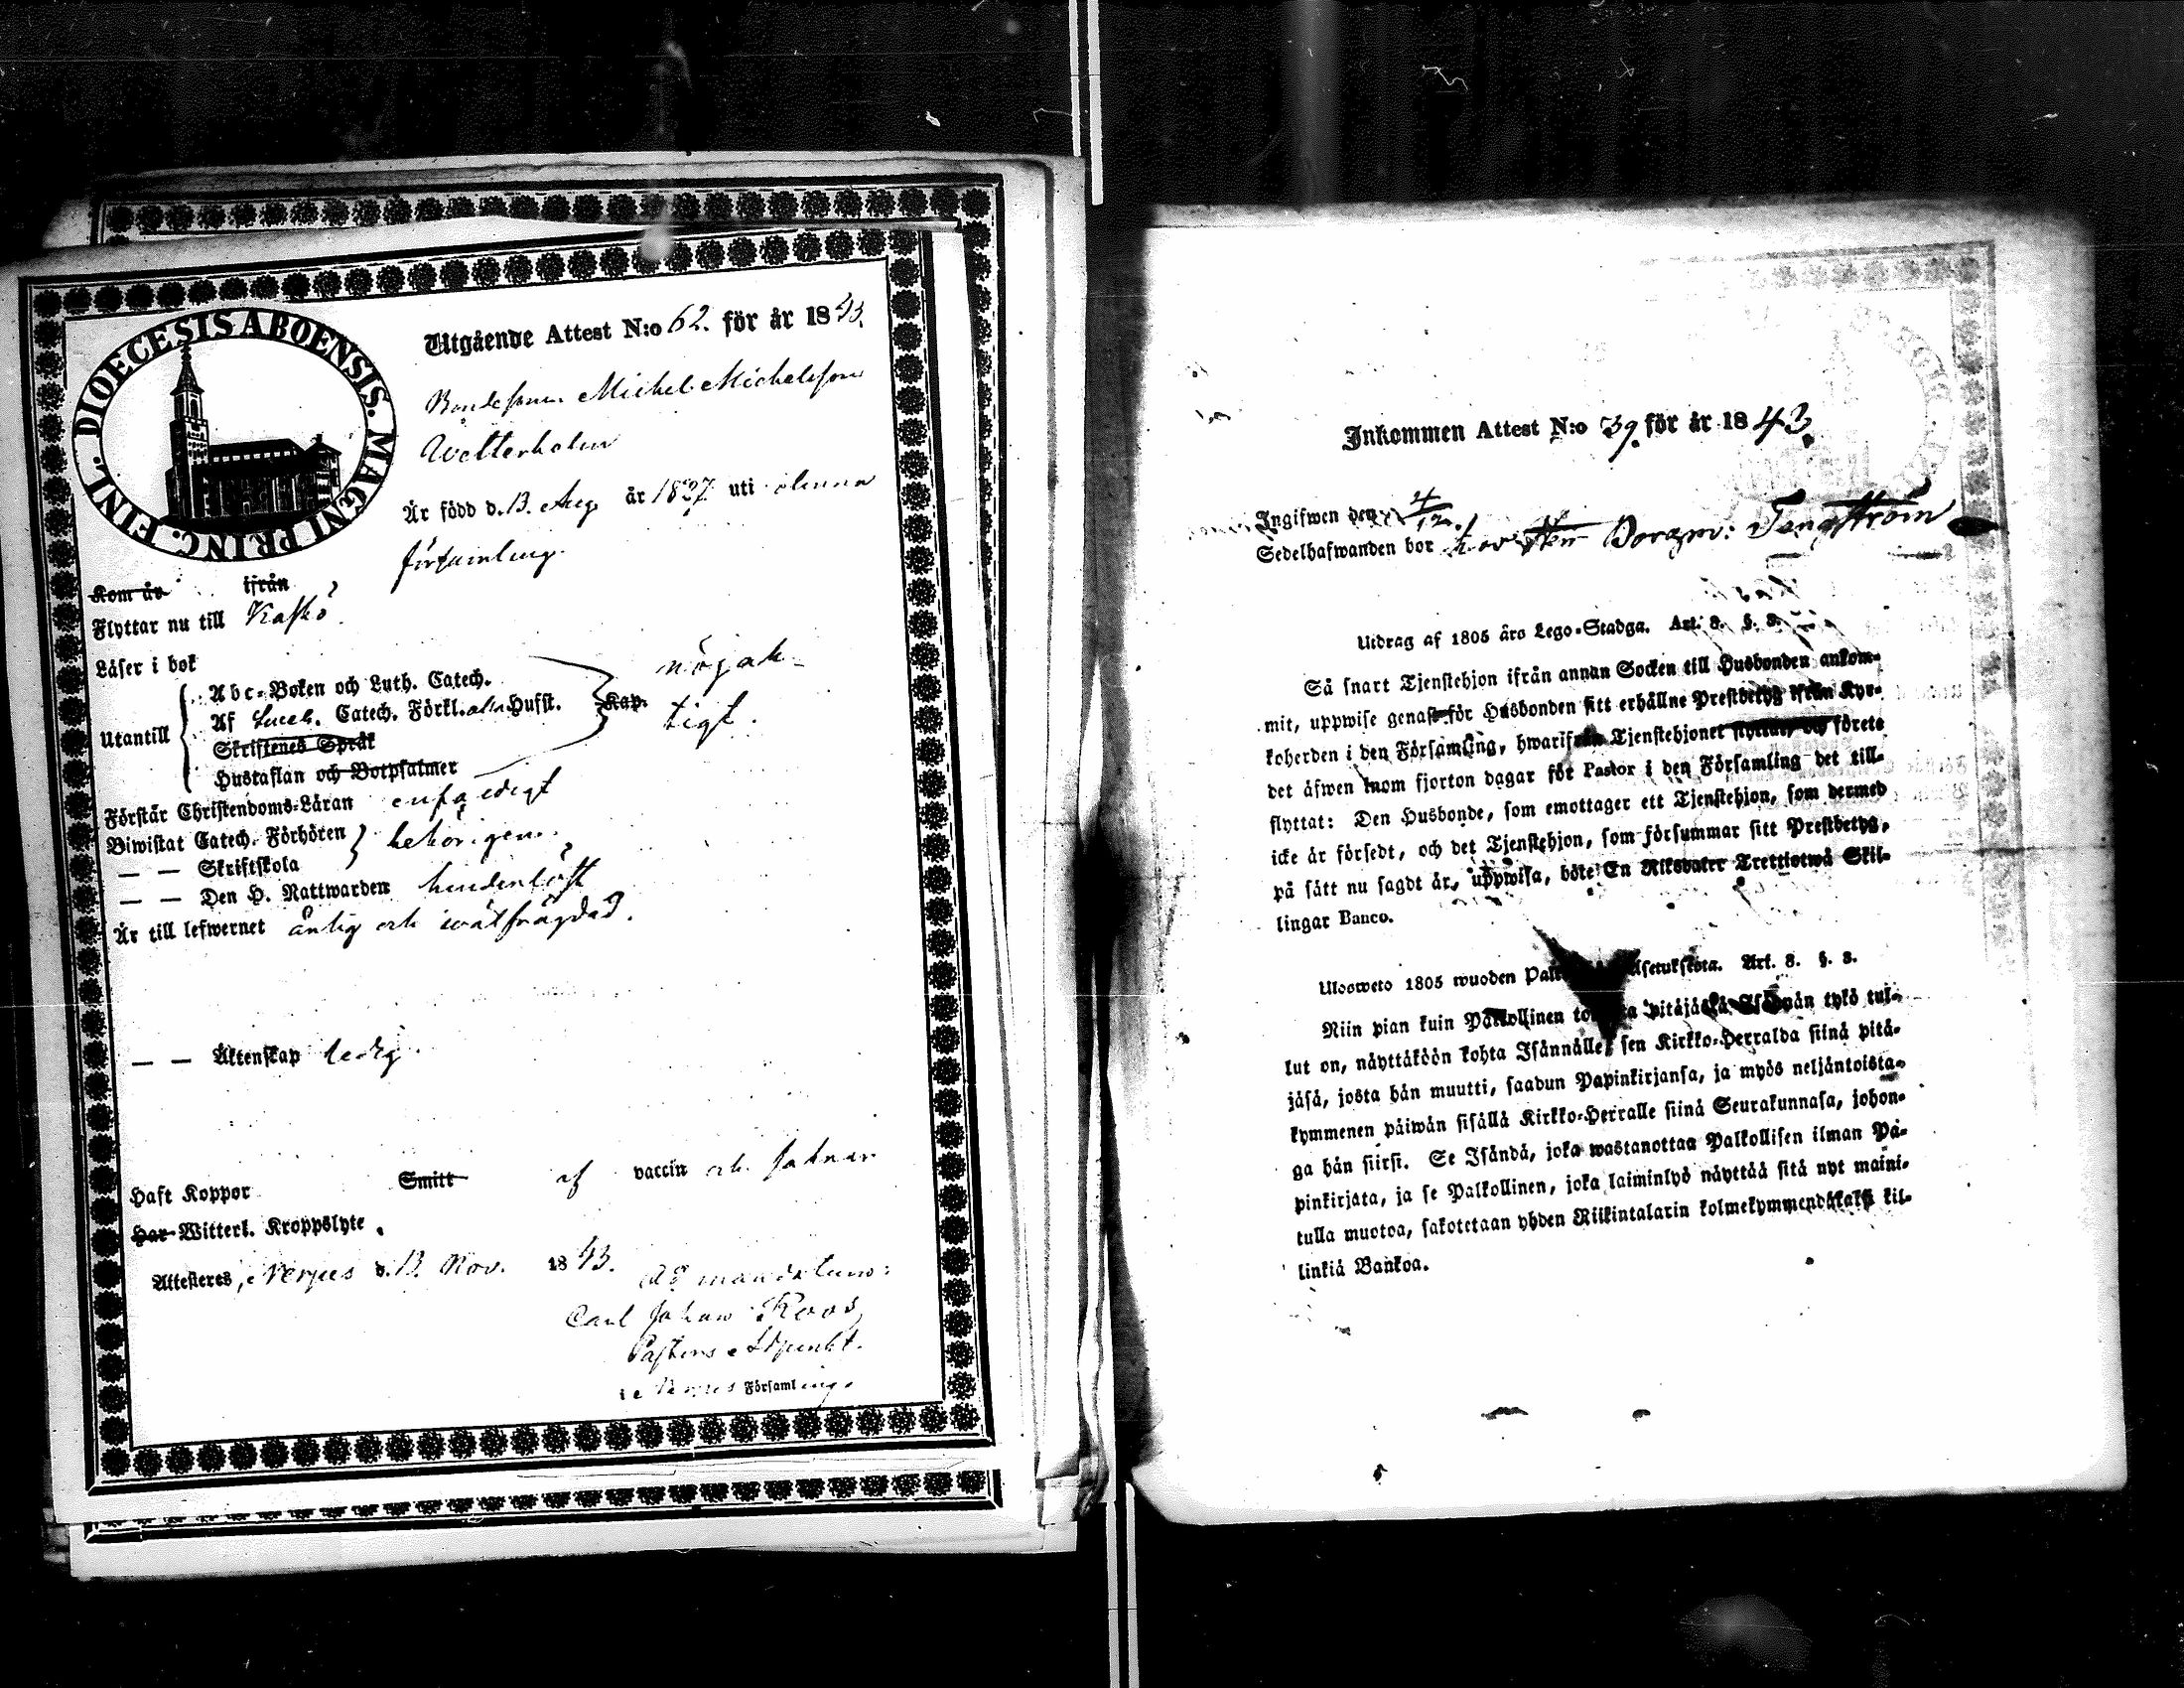 DIOECESIS ABOENSIS. MAGNI PRINC. FINL.
Utgående Attest N:o 62. för år 1843.
Bondesonen Michel Michelsson
Wetterholm
Är född d. 13. Aug. år 1827 uti denna
församling.
Kom år ifrån
Flyttar nu till Kaskö.
Läser i bok
Utantill
Abc-Boken och Luth. Catech.
Af Luch. Catech. Förkl. Husft.
Skriftenes Språk
Hustaflan och Botpsalmer
Kap.
nöjak-
tigt.
Förstår Christendoms-Läran enfaldigt
Biwistat Catech. Förhören
— — Skriftskola
behörigen.
— — Den H. Nattwarden hinderlöst
Är till lefwernet ärlig och wälfrägdad.
— — Äktenskap ledig.
Haft Koppor Smitt af vaccin och saknar
Har Witterl. Kroppslyte.
Attesteres, Nerpes d. 13. Nov. 1843.
Ad mandatum:
Carl Johan Roos
Pastors Adjunkt.
i Nerpes Församling.
Inkommen Attest N:o 39. för år 1843.
Ingifwen den 4/12.
Sedelhafwanden bor hos Herr Borgm: Tengström
Utdrag af 1805 års Lego-Stadga. Art. 8. §. 8.
Så snart Tjenstehjon ifrån annan Socken till Husbonden ankom-
mit, uppwise genast för Husbonden sitt erhållne Prestbetyg ifrån Kyr-
koherden i den Församling, hwarifrån Tjenstehjonet flyttat, och förete
det äfwen inom fjorton dagar för Pastor i den Församling det till-
flyttat: Den Husbonde, som emottager ett Tjenstehjon, som dermed
icke är försedt, och det Tjenstehjon, som försummar sitt Prestbetyg,
på sätt nu sagdt är, uppwisa, böte En Riksdaler Trettiotwå Skil-
lingar Banco.
Ulosweto 1805 wuoden Art. 8. §. 8.
Niin pian kuin Palkollinen pitäjästä Isännän tykö tul-
lut on, näyttäköön kohta Isännälle sen Kirkko-Herralda siinä pitä-
jäsä, josta hän muutti, saadun Papinkirjansa, ja myös neljäntoista-
kymmenen päiwän sisällä Kirkko-Herralle siinä Seurakunnasa, johon-
ga hän siirsi. Se Isändä, joka wastanottaa Palkollisen ilman Pa-
pinkirjata, ja se Palkollinen, joka laiminlyö näyttää sitä nyt maini-
tulla muotoa, sakotetaan yhden Riikintalarin kolmekymmendäkaksi kil-
linkiä Bankoa.